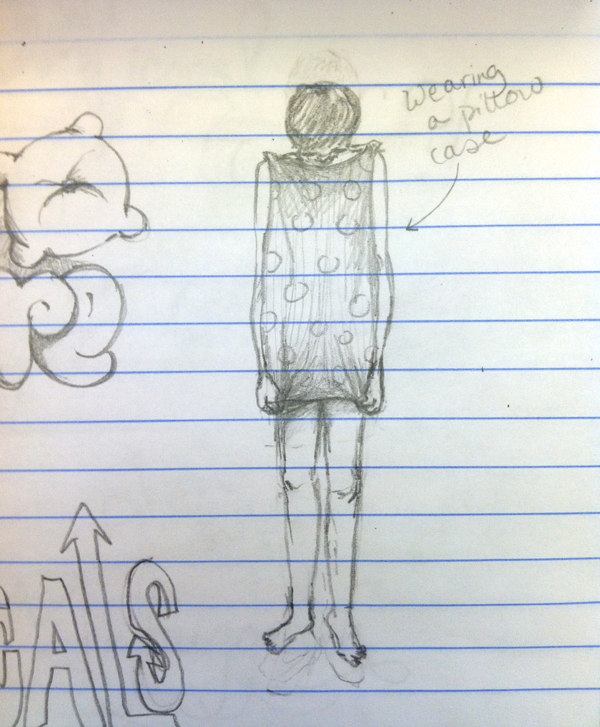 Wearing
a pillow
case